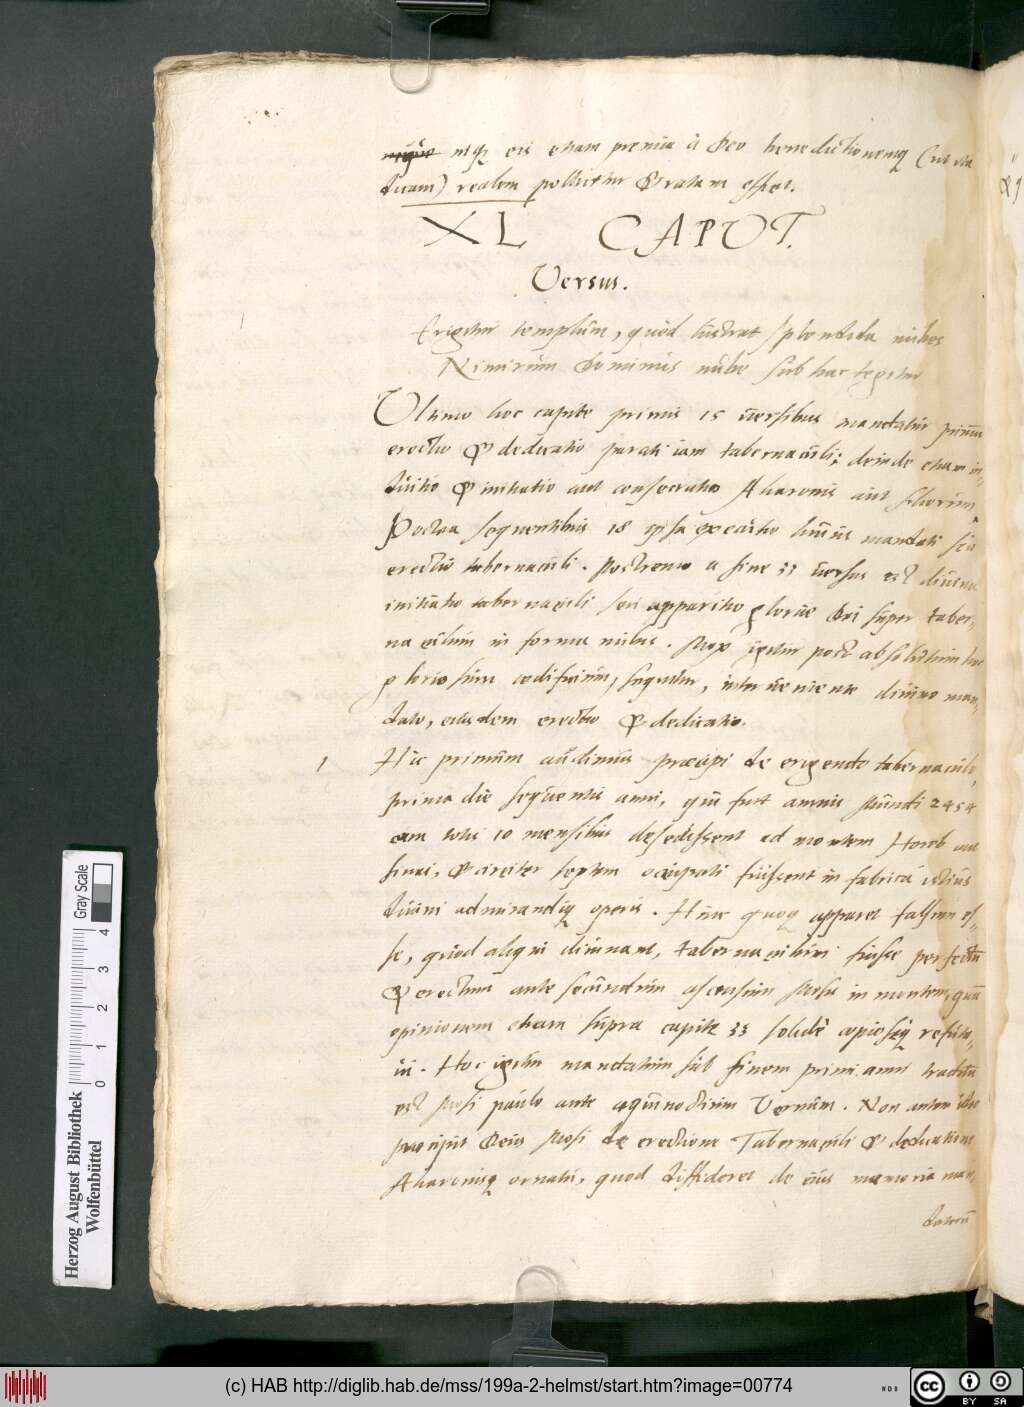 nisq̄ eis etiam premia à Deo benedictionemq̄
realem polliceretur & ratam esset.
XL CAPUT.
Versus.
Erigitur templum, quod lustrat splendida nubes
Nimirum Dominus nube sub hac tegitur
Ultimo hoc capite primis 15 versibus mandatur primū
erectio & dedicatio parati iam tabernaculi; deinde etiam in-
& initiatio aut consecratio Aharonis aut filiorum
Postea sequentibus 18 ipsa executio huius mandati seu
erectio tabernaculi. Postremo a fine 33 versus est divina
initiatio tabernaculi seu apparitio gloriae Dei super taber-
naculum in forma nubis. Mox igitur post absolutum hoc
gloriosum aedificium, sequitur, interveniente divino man-
dato, eiusdem erectio & dedicatio.
1 Hic primum audimus praecipi de erigendo tabernaculo,
prima die sequentis anni, qui fuit annus Mundi 2454
cum totis 10 mensibus desedissent ad montem Horeb aut
Sinai, & circiter septem occupati fuissent in fabrica istius
divini admirandiq̄ operis. Hinc quoq̄ apparet falsum es-
se, quod aliqui divinant, tabernaculum fuisse perfectū
& erectum ante secundum ascensum Mosis in montem, quā
opinionem etiam supra capite 33 solide copioseq̄ refuta-
vi. Hoc igitur mandatum sub finem primi anni traditū
est Mosi paulo ante aequinoctium Vernum. Non autem ideo
praecipit Deus Mosi de erectione Tabernaculi & dedicatione
Aharonisq̄ ornatu, quod diffideret de eius memoria man-
datorū
Herzog August Bibliothek
Wolfenbüttel
0 1 2 3 4
Gray Scale
(c) HAB http://diglib.hab.de/mss/199a-2-helmst/start.htm?image=00774
cc BY SA